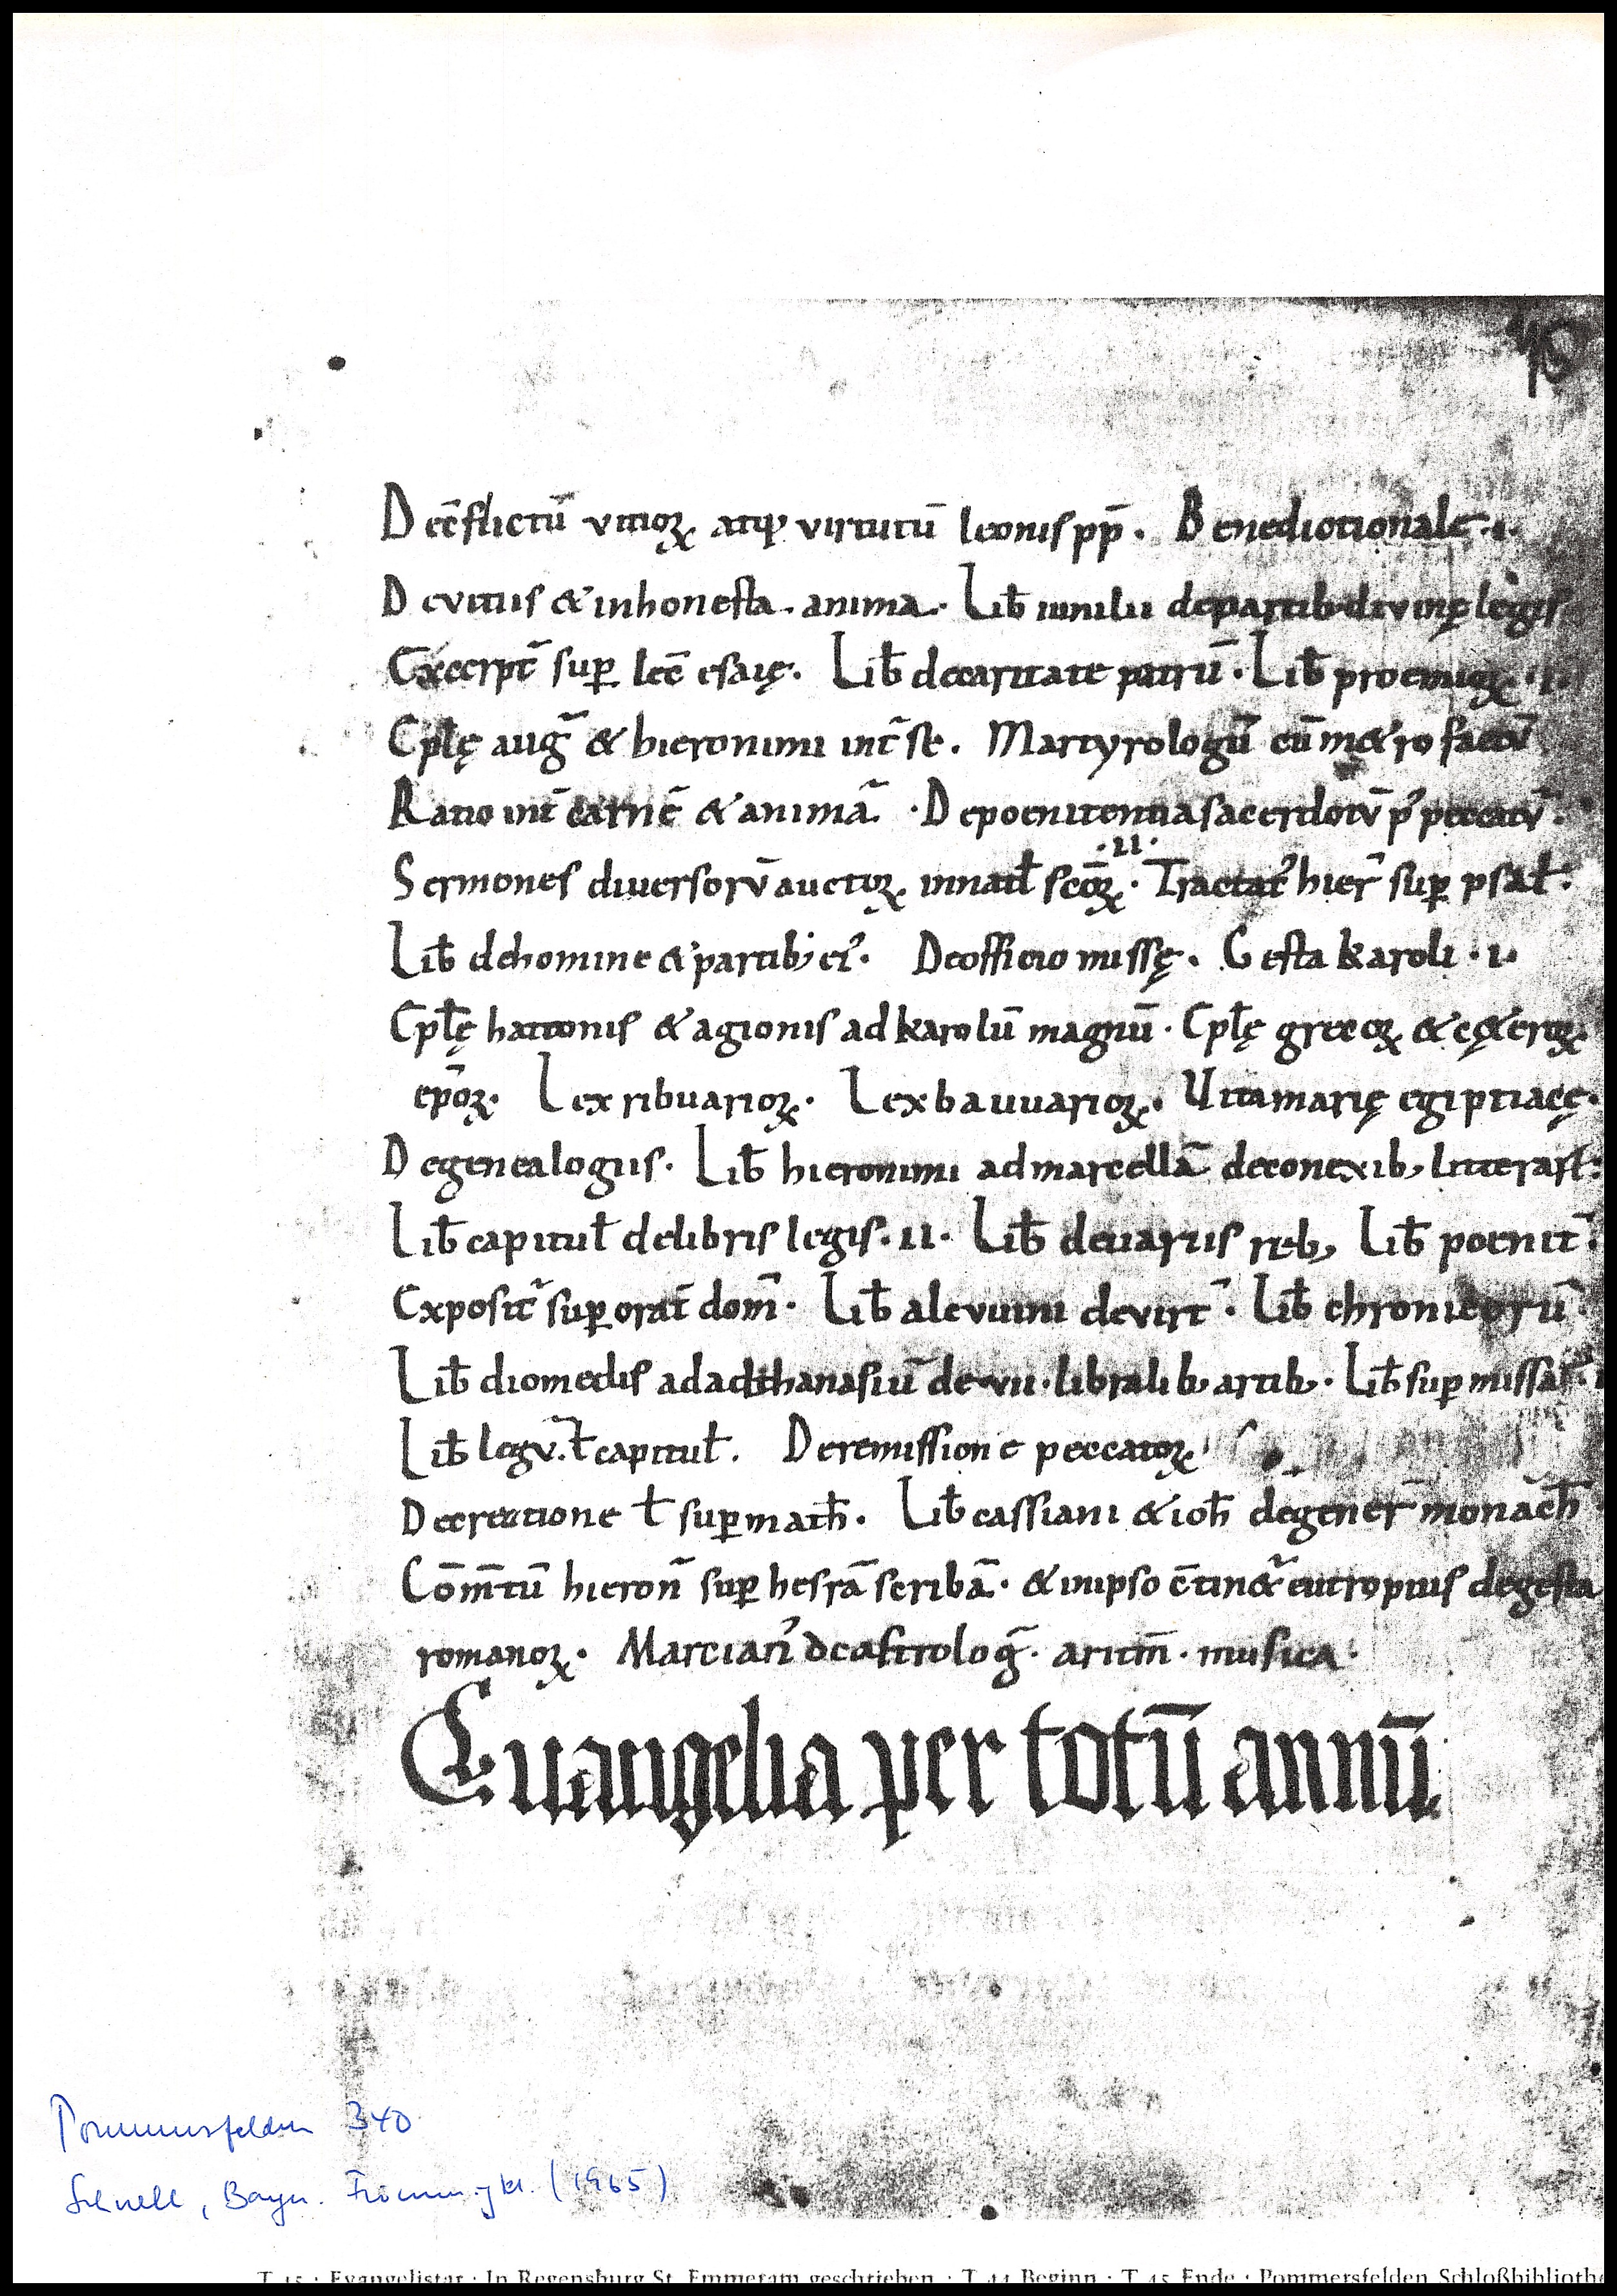 Decflictū vitioꝝ atqꝫ virtutū leonis pp̄ · Benedictionale · ı ·
De vitiis & inhonesta · anima · Lib̄ iunilii de partib; divinę legis
Excerpt̄ sup lec̄ esaię · Lib̄ de caritate patrū · Lib̄ proemioꝝ · ı ·
Ep̄lę aug̃ & hieronimi int̄ se · Martyrologiū cū m&ro factū
Ratio int̄ carnē & animā · De poenitentia sacerdotū p' peccatū ·
· ıı ·
Sermones diversorū auctoꝝ in natal̄ sc̄oꝝ · Tractat' hier̄ sup psal̄ ·
Lib̄ de homine & partib; ei' · De officio missę · Gesta karoli · ı ·
Ep̄lę hattonis & agionis ad karolū magnū · Ep̄lę grecoꝝ & cę&eroꝝ
ep̄oꝝ · Lex ribuarioꝝ · Lex bauuarioꝝ · Uita marię egiptiacę ·
De genealogiis · Lib̄ hieronimi ad marcellā de conexib; litterarū ·
Lib̄ capitul̄ de libris legis · ıı · Lib̄ de uariis reb; Lib̄ poenit̄ ·
Exposit̄ sup orat̄ dom̄ · Lib̄ alcvuini de virt̄ · Lib̄ chronicorū ·
Lib̄ diomedis ad adthanasiū de · vıı · libralib; artib; · Lib̄ sup missā
Lib̄ legū · ł capitul̄ · De remissione peccatoꝝ
De creatione ł sup math̄ · Lib̄ cassiani & ioh̄ de gener̄ monach̄
Com̄tū hieron̄ sup hesrā scribā · & in ipso c̄tin&' eutropius de gesta
romanoꝝ · Marcian' de astrolog̃ · aritm̄ · musica ·
Euangelia per totū annū
Pommersfelden 340
Schnell, Bayr. Frömmigkt. (1965)
T 15 · Evangelistar · In Regensburg St. Emmeram geschrieben · T 44 Beginn · T 45 Ende · Pommersfelden Schloßbibliothe